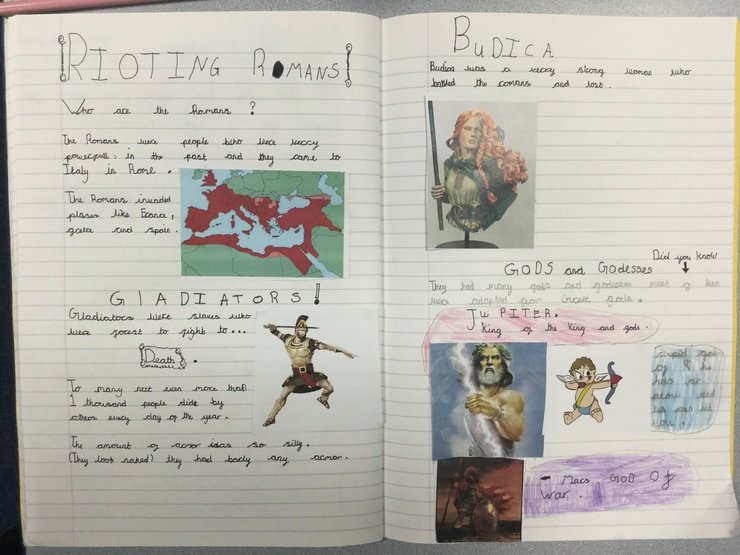 RIOTING ROMANS!
Who are the Romans ?
The Romans were people who were very
powerfull: in the past and they came to
Italy in Rome .
The Romans invaded
plases like France,
and spain .
GlADIATORS!
Gladiators were slaves who
were forest to fight to...
Death .
To many not even more than
1 thousand people dide by
others every day of the year .
The amount of armor was so silly .
(They look naked) they had bady any armor .
BUDICA
Budica was a very strong woman who
battled the romans and lost .
Did you know
GODS and GOdesses
They had many gods and godesses most of them
were adapted from Greek gods .
JuPITER.
King of the King and gods .
cupid god
of & he
has an
arow and
he can hit
- Mars GOD Of
War .